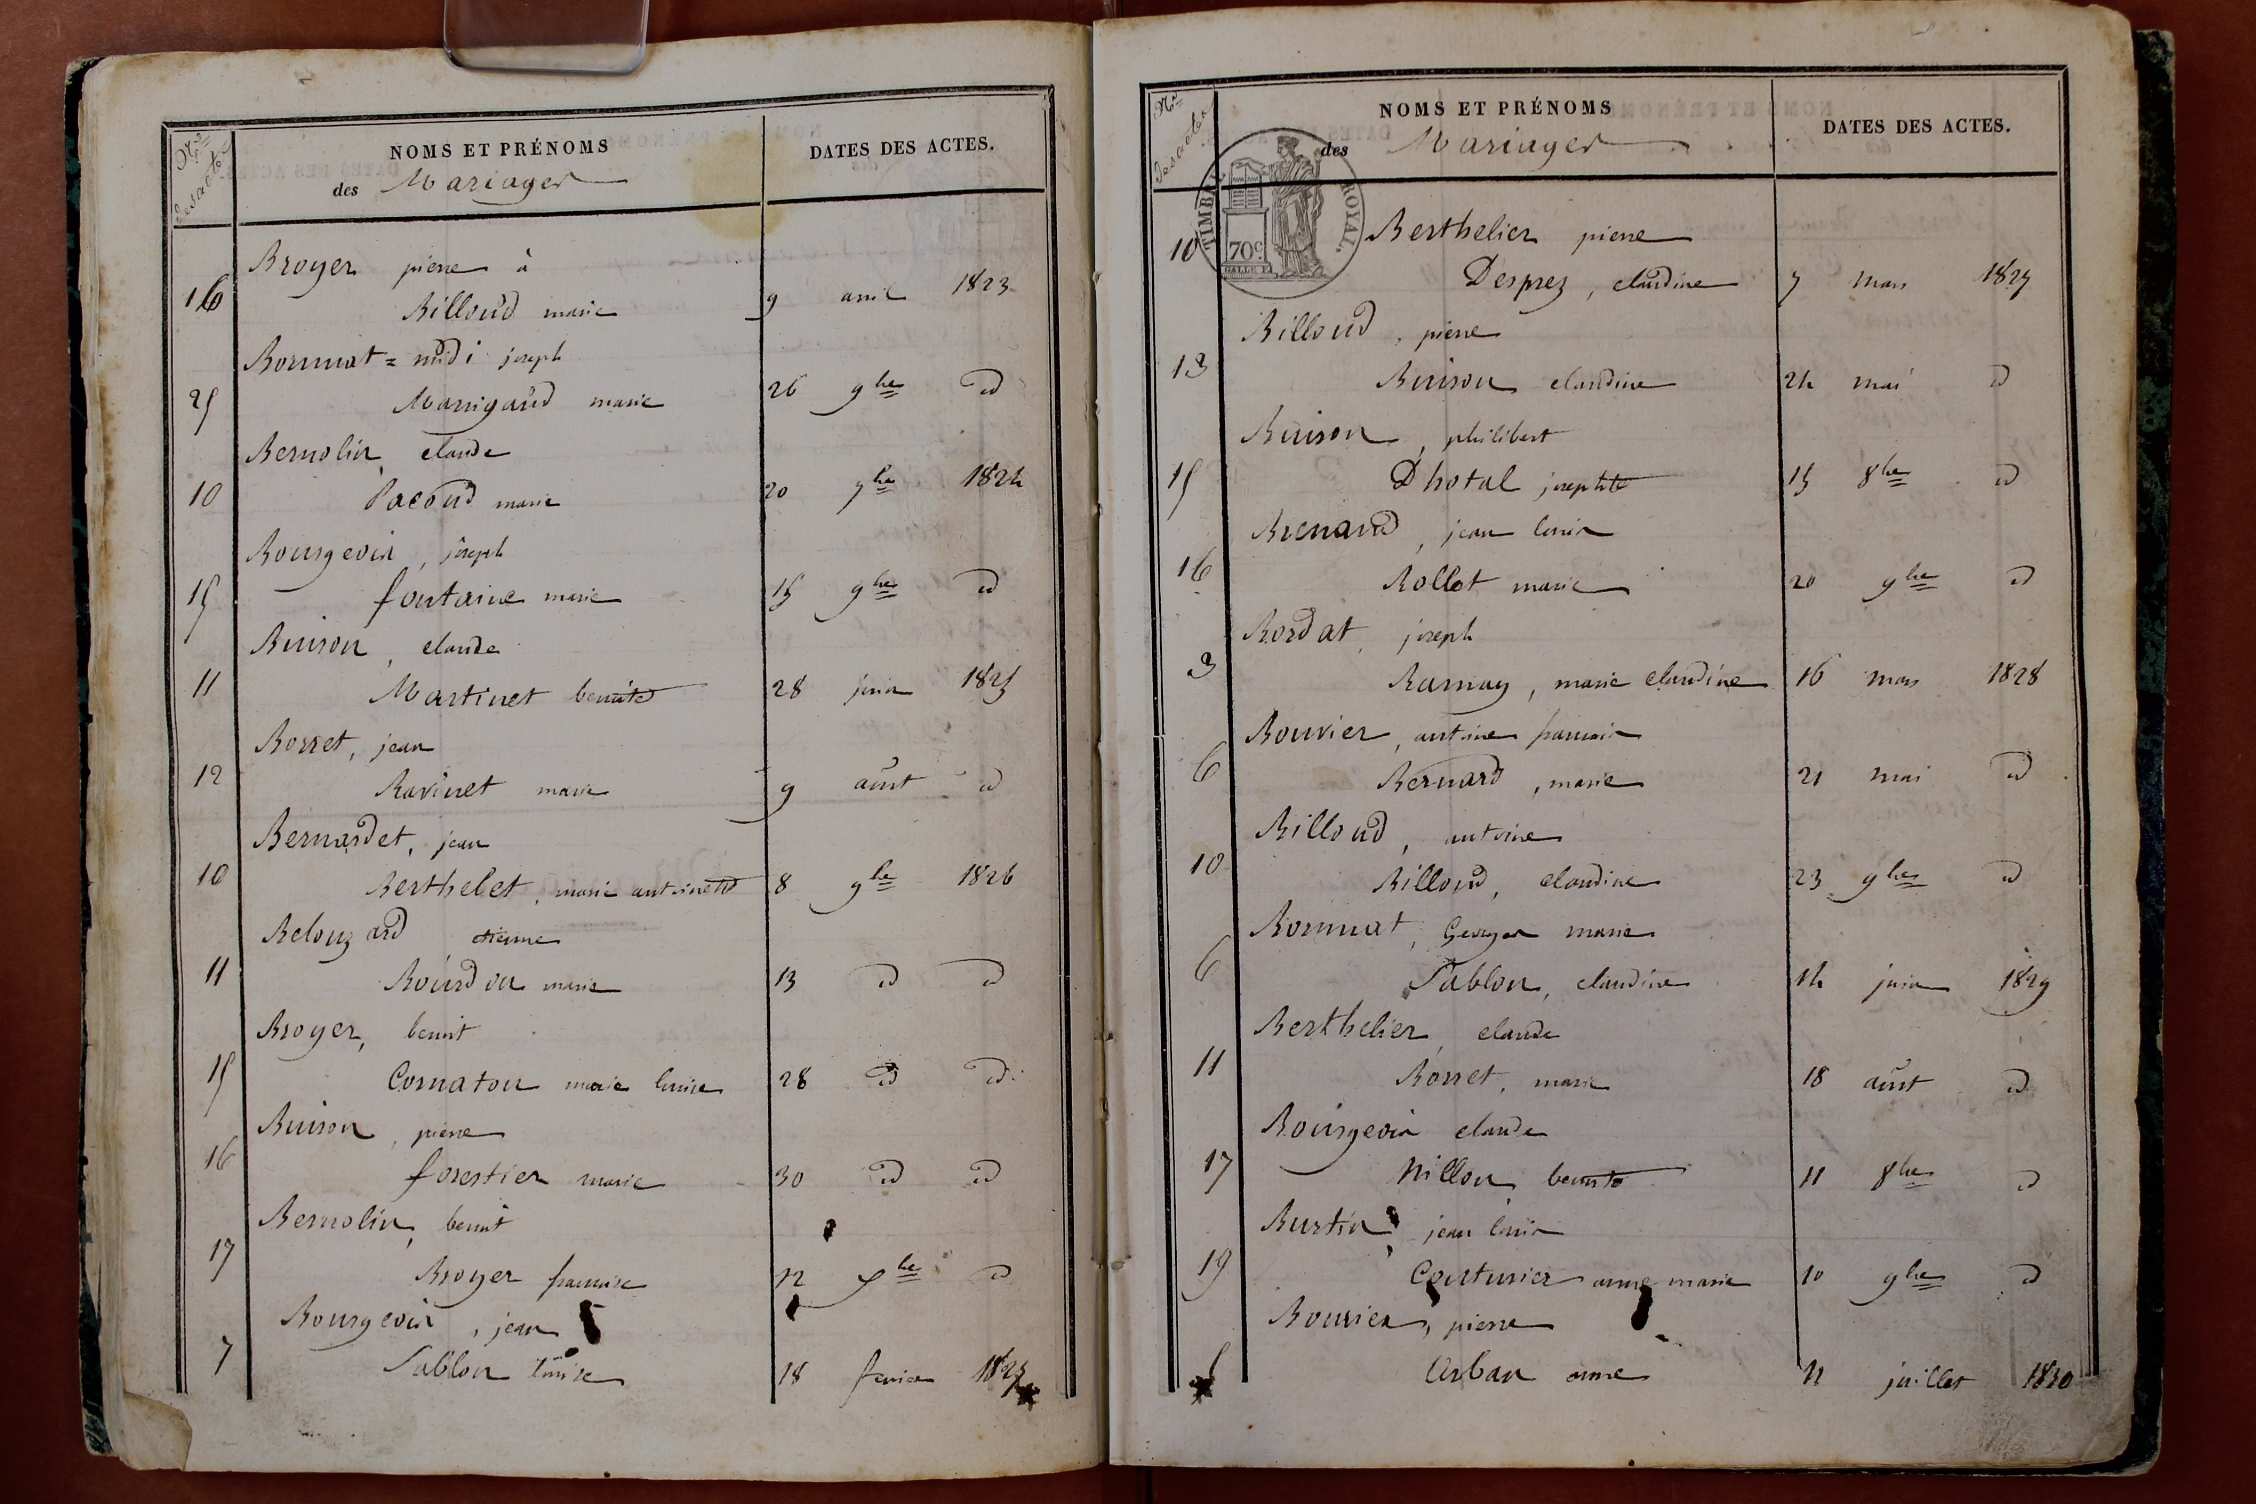 Nos des actes
NOMS ET PRÉNOMS
des Mariages
DATES DES ACTES.
Broyer pierre à
16 Billoud marie 9 avril 1823
Bonnat = midi joseph
25 Marrigaud marie 26 9bre id
Bernolin, claude
10 Pacoud marie 20 7bre 1824
Bourgeois, joseph
15 fontaine marie 15 9bre id
Buison, claude
11 Martinet benoite 28 juin 1825
Borret, jean
12 Ravinet marie 9 aoust id
Bernardet, jean
10 Berthelet, marie antoinette 8 9bre 1826
Belouzard etienne
11 Bourdon marie 13 id id
Broyer, benoit
15 Cornaton marie louise 28 id id
Buison, pierre
16 forestier marie 30 id id
Bernolin, benoit
17 Broyer francoise 12 xbre id
Bourgeois, jean
7 Sablon louise 18 fevrier 1827
Nos des actes
NOMS ET PRÉNOMS
des Mariages
DATES DES ACTES.
TIMBRE ROYAL.
70c
Berthelier pierre
10 Desprez, claudine 7 mars 1827
Billoud, pierre
13 Buison claudine 24 mai id
Buison, philibert
15 Dhotal josephte 15 8bre id
Brenaud, jean louis
16 Rollet marie 20 9bre id
Bordat, joseph
3 Ramay, marie claudine 16 mars 1828
Bouvier, antoine francois
6 Bernard, marie 21 mai id
Billoud, antoine
10 Billoud, claudine 23 9bre id
Bonnat, Georges marie
6 Sablon, claudine 14 juin 1829
Berthelier, claude
11 Borret, marie 18 aoust id
Bourgeois claude
17 Nillon, benoite 11 8bre id
Burtin, jean louis
19 Couturier anne marie 10 9bre id
Bouvier, pierre
Urban anne 11 juillet 1830